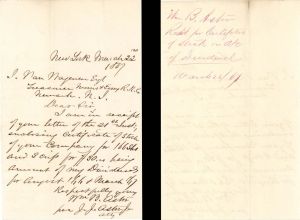 New York March 22nd
1867
J. Van Wagenen Esqr
Treasurer Morris & Essex R. R. Co
Newark N. J.
Dear Sir
I am in receipt
of your letter of the 20th Inst,
enclosing Certificate of Stock
of your Company for 166 Shs
and Scrip for $30. being
amount of my Dividend
for August 1866 & March 67
Respectfully yours
Wm B. Astor
per J. J. Astor Jr
Wm B. Astor
Rect for Certificate
of Stock on a/c
of Dividend
March 22/67